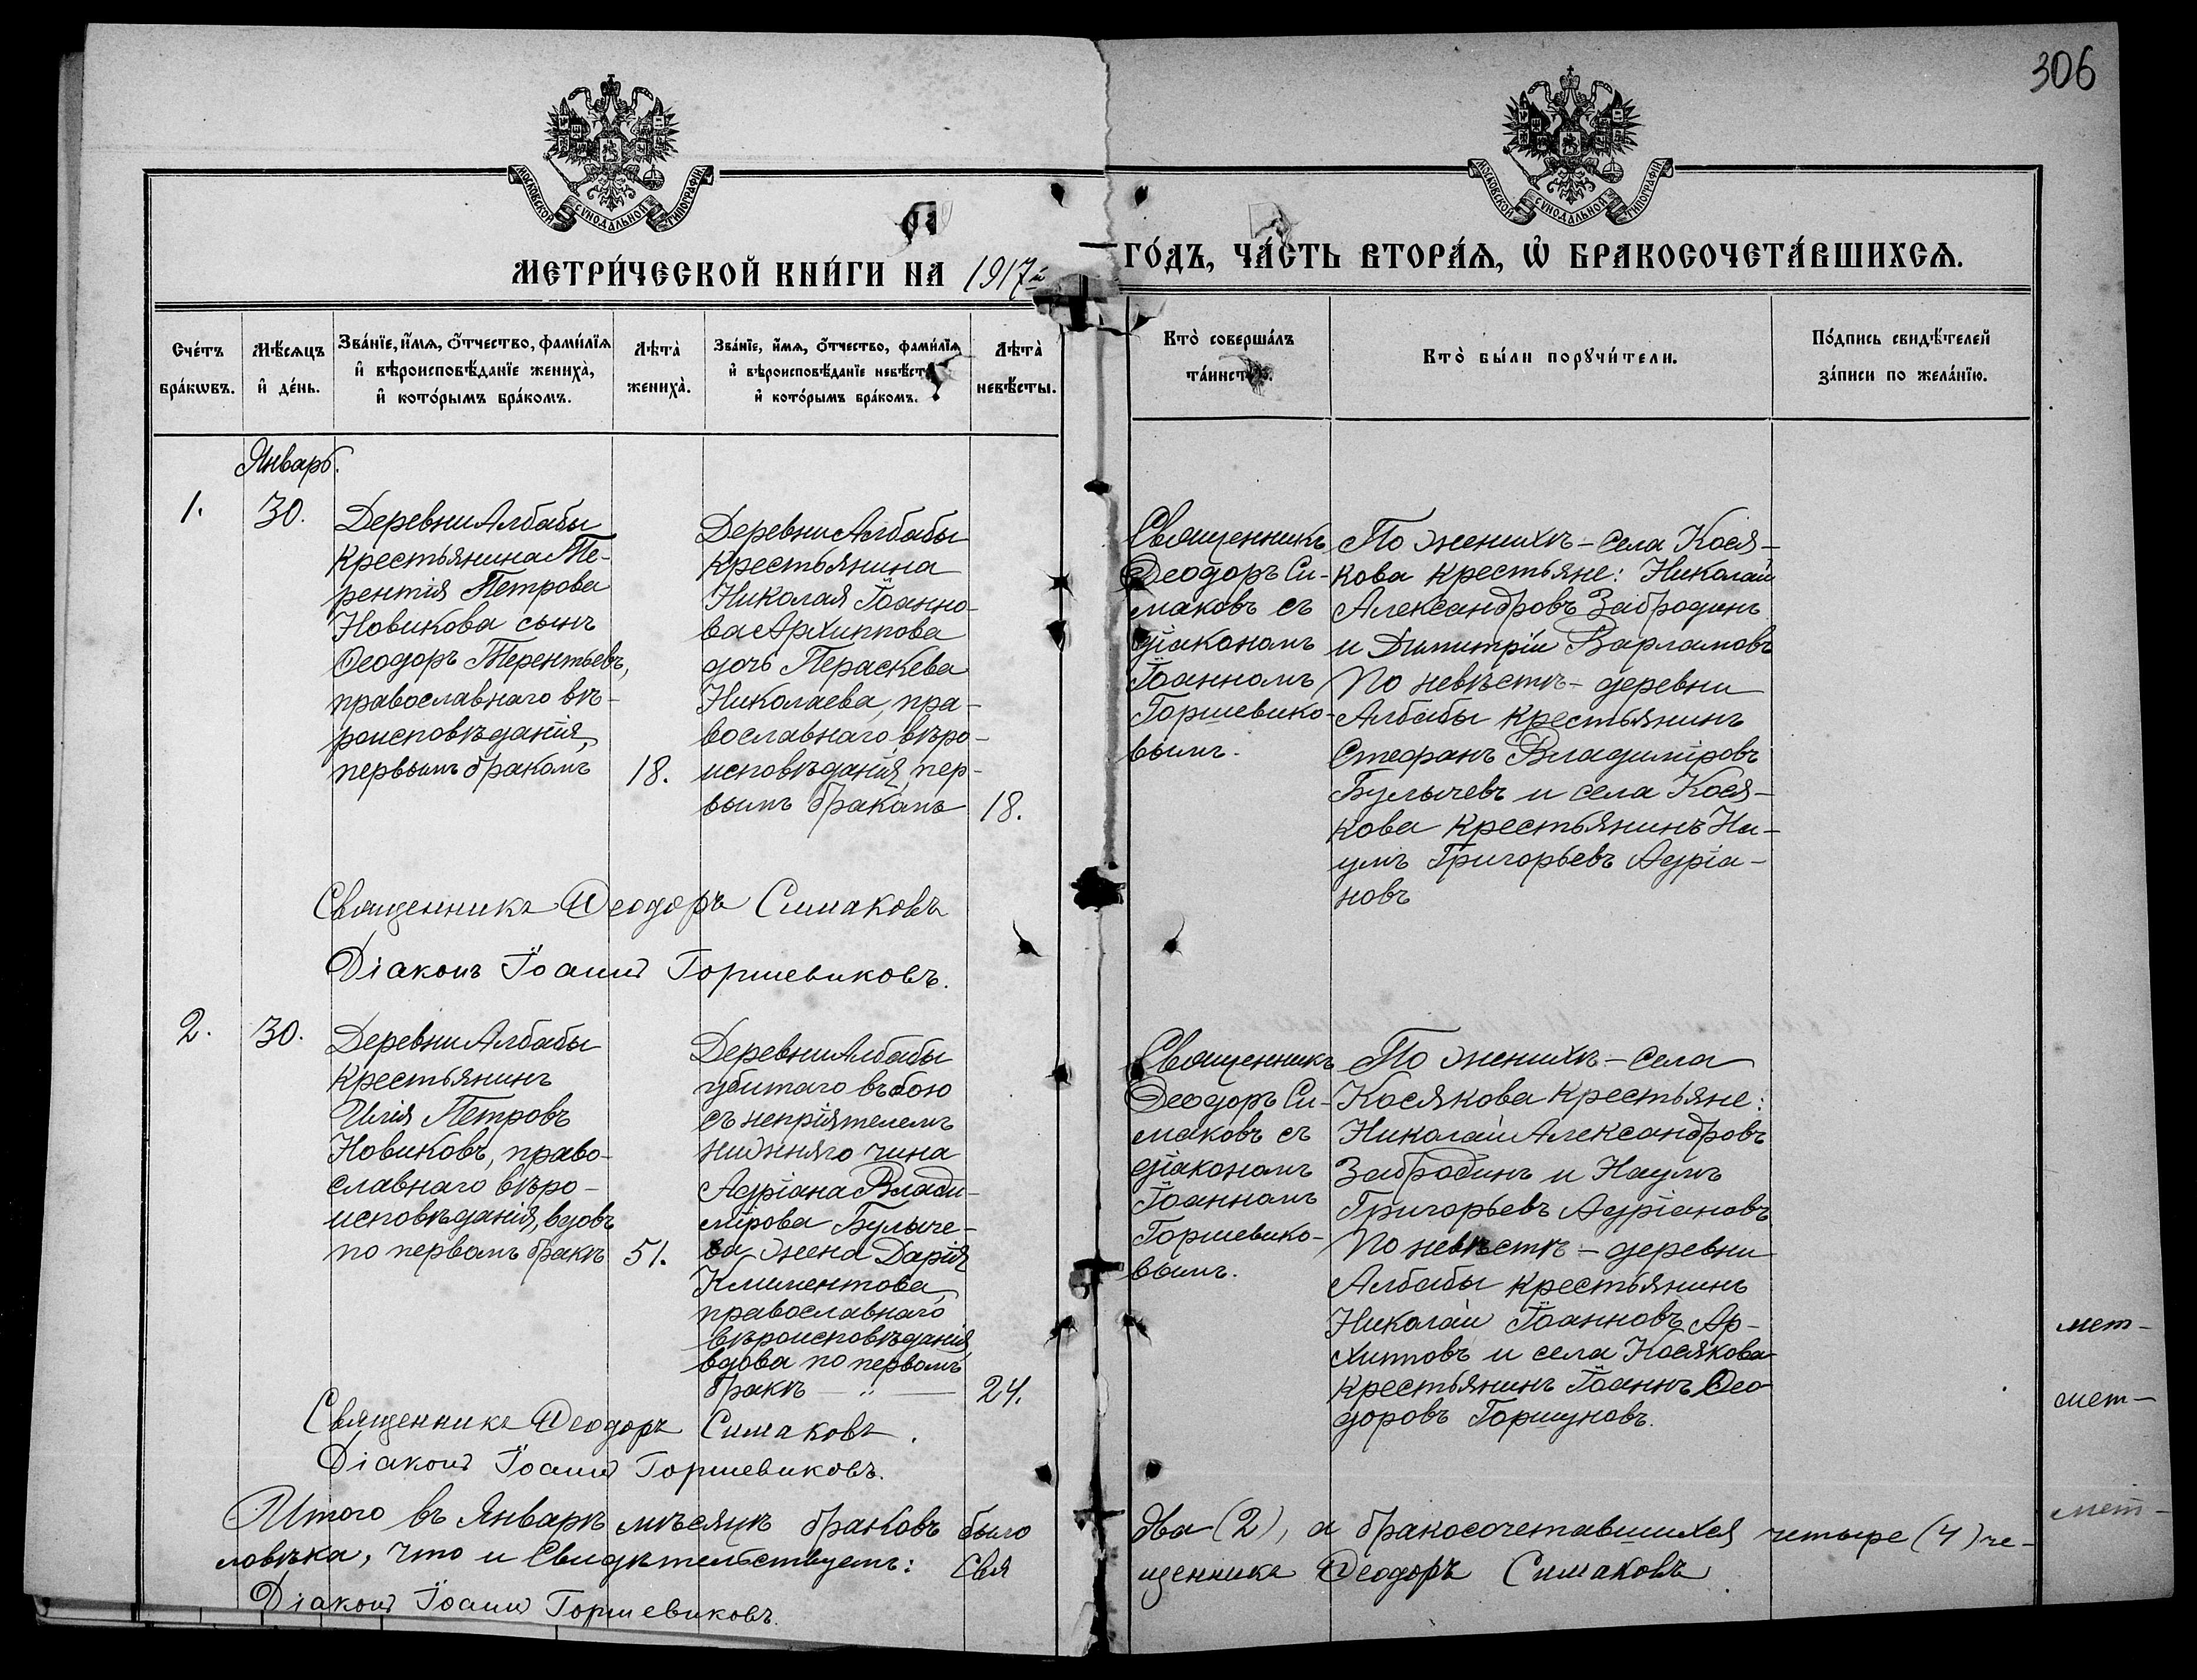 306
МОСКОВСКОЙ СѴНОДАЛЬНОЙ ТИПОГРАФІИ
МОСКОВСКОЙ СѴНОДАЛЬНОЙ ТИПОГРАФІИ
МЕТРИ́ЧЕСКОЙ КНИ́ГИ НА 1917й ГО́ДЪ, ЧА́СТЬ ВТОРА́Ѧ, Ѡ҆ БРАКОСОЧЕТА́ВШИХСѦ.
Сче́тъ
бра́кѡвъ.
Мѣ́сѧцъ
и҆ де́нь.
Зва́нїе, и҆́мѧ, ѻ҆́тчество, фами́лїѧ
и҆ вѣроисповѣ́данїе жениха̀,
и҆ кото́рымъ бра́комъ.
Лѣта̀
жениха̀.
Зва́нїе, и҆́мѧ, ѻ҆́тчество, фами́лїѧ
и҆ вѣроисповѣ́данїе невѣ́сты
и҆ кото́рымъ бра́комъ.
Лѣта̀
невѣ́сты.
Кто̀ соверша́лъ
та́инство.
Кто̀ бы́ли порꙋчи́тели.
По́дпись свидѣ́телей
за́писи по жела́нїю.
Январь.
1.
30.
Деревни Албабы
крестьянина Те-
рентія Петрова
Новикова сынъ
Ѳеодоръ Терентьевъ,
православнаго вѣ-
роисповѣданія,
первымъ бракомъ
18.
Деревни Албабы
крестьянина
Николая Іоанно-
ва Архиппова
дочь Параскева
Николаева, пра-
вославнаго вѣро-
исповѣданія, пер-
вымъ бракомъ
18.
Священникъ
Ѳеодоръ Си-
маковъ съ
діакономъ
Іоанномъ
Горшевико-
вымъ.
По женихѣ – села Кося-
кова крестьяне: Николай
Александровъ Забродинъ
и Димитрій Варламовъ
По невѣстѣ – деревни
Албабы крестьянинъ
Стефанъ Владиміровъ
Булычевъ и села Кося-
кова крестьянинъ На-
умъ Григорьевъ Адріа-
новъ
Священникъ Ѳеодоръ Симаковъ
Діаконъ Іоаннъ Горшевиковъ.
2.
30.
Деревни Албабы
крестьянинъ
Илія Петровъ
Новиковъ, право-
славнаго вѣро-
исповѣданія, вдовъ
по первомъ бракѣ
51.
Деревни Албабы
убитаго въ бою
съ непріятелемъ
нижняго чина
Адріана Влади-
мірова Булыче-
ва жена Дарія
Климентова,
православнаго
вѣроисповѣданія
вдова по первомъ
бракѣ — „ —
24.
Священникъ
Ѳеодоръ Си-
маковъ съ
діакономъ
Іоанномъ
Горшевико-
вымъ.
По женихѣ – села
Косякова крестьяне:
Николай Александровъ
Забродинъ и Наумъ
Григорьевъ Адріановъ
По невѣстѣ – деревни
Албабы крестьянинъ
Николай Іоанновъ Ар-
хипповъ и села Косякова
крестьянинъ Іоаннъ Ѳео
доровъ Горшуновъ.
Священникъ Ѳеодоръ Симаковъ.
Діаконъ Іоаннъ Горшевиковъ.
Итого въ Январѣ мѣсяцѣ браковъ было два (2), а бракосочетавшихся четыре (4) че-
ловѣка, что и свидѣтельствуемъ: Священникъ Ѳеодоръ Симаковъ
Діаконъ Іоаннъ Горшевиковъ.
мет-
мет-
мет-